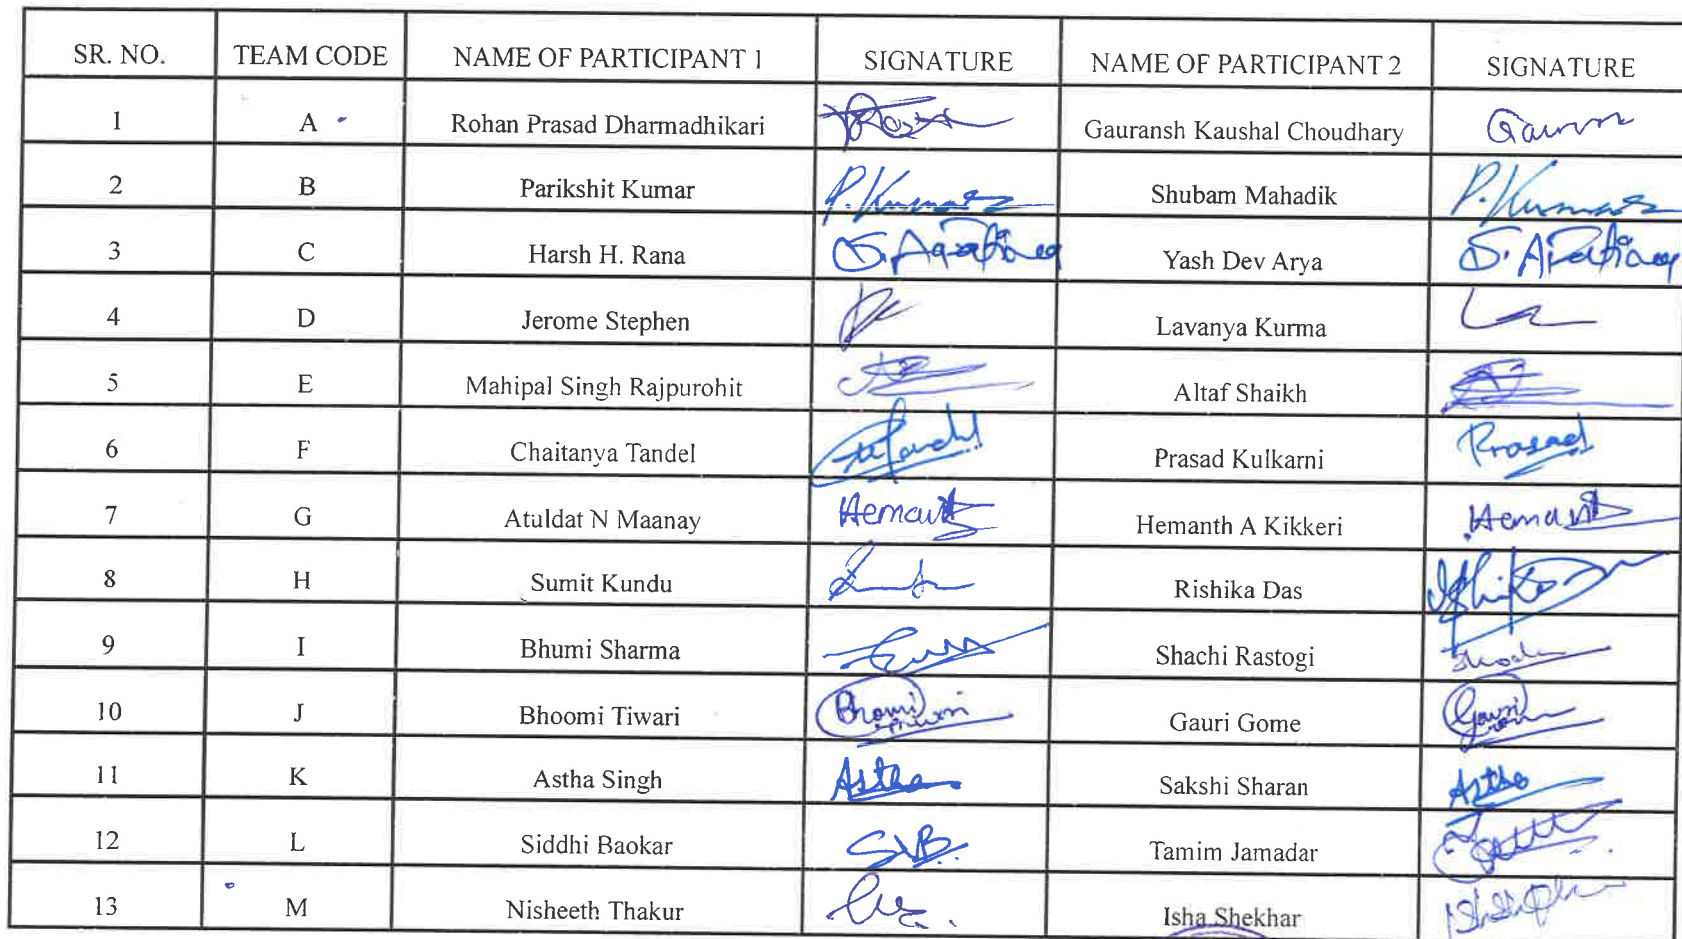 SR. NO. TEAM CODE NAME OF PARTICIPANT 1 SIGNATURE NAME OF PARTICIPANT 2 SIGNATURE
1 A Rohan Prasad Dharmadhikari Gauransh Kaushal Choudhary
2 B Parikshit Kumar P. Kumar Shubam Mahadik P. Kumar
3 C Harsh H. Rana Yash Dev Arya
4 D Jerome Stephen Lavanya Kurma
5 E Mahipal Singh Rajpurohit Altaf Shaikh
6 F Chaitanya Tandel Prasad Kulkarni Prasad
7 G Atuldat N Maanay Hemant Hemanth A Kikkeri Hemant
8 H Sumit Kundu Rishika Das
9 I Bhumi Sharma Shachi Rastogi
10 J Bhoomi Tiwari Gauri Gome Gauri
11 K Astha Singh Astha Sakshi Sharan Astha
12 L Siddhi Baokar SVB Tamim Jamadar
13 M Nisheeth Thakur Isha Shekhar